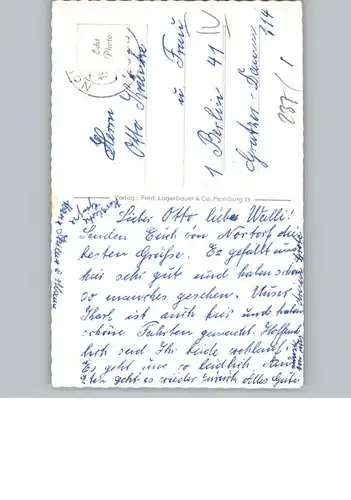 Edit
Photo
Herrn
Otto
u. Frau
1 Berlin 41
IV
114
237/1
Verlag: Ferd. Lagerbauer & Co., Hamburg 21
Lieber Otto liebe Walli!
Senden Euch von Nortorf die
besten Grüße. Es gefällt uns
hir sehr gut und haben schon
so manches gesehen. Unser
Karl ist auch hir und haben
schöne Fahrten gemacht. Hoffent
lich seid Ihr beide wohlauf.
Es geht uns so leidlich. Am
geht es wieder zurück Alles Gute